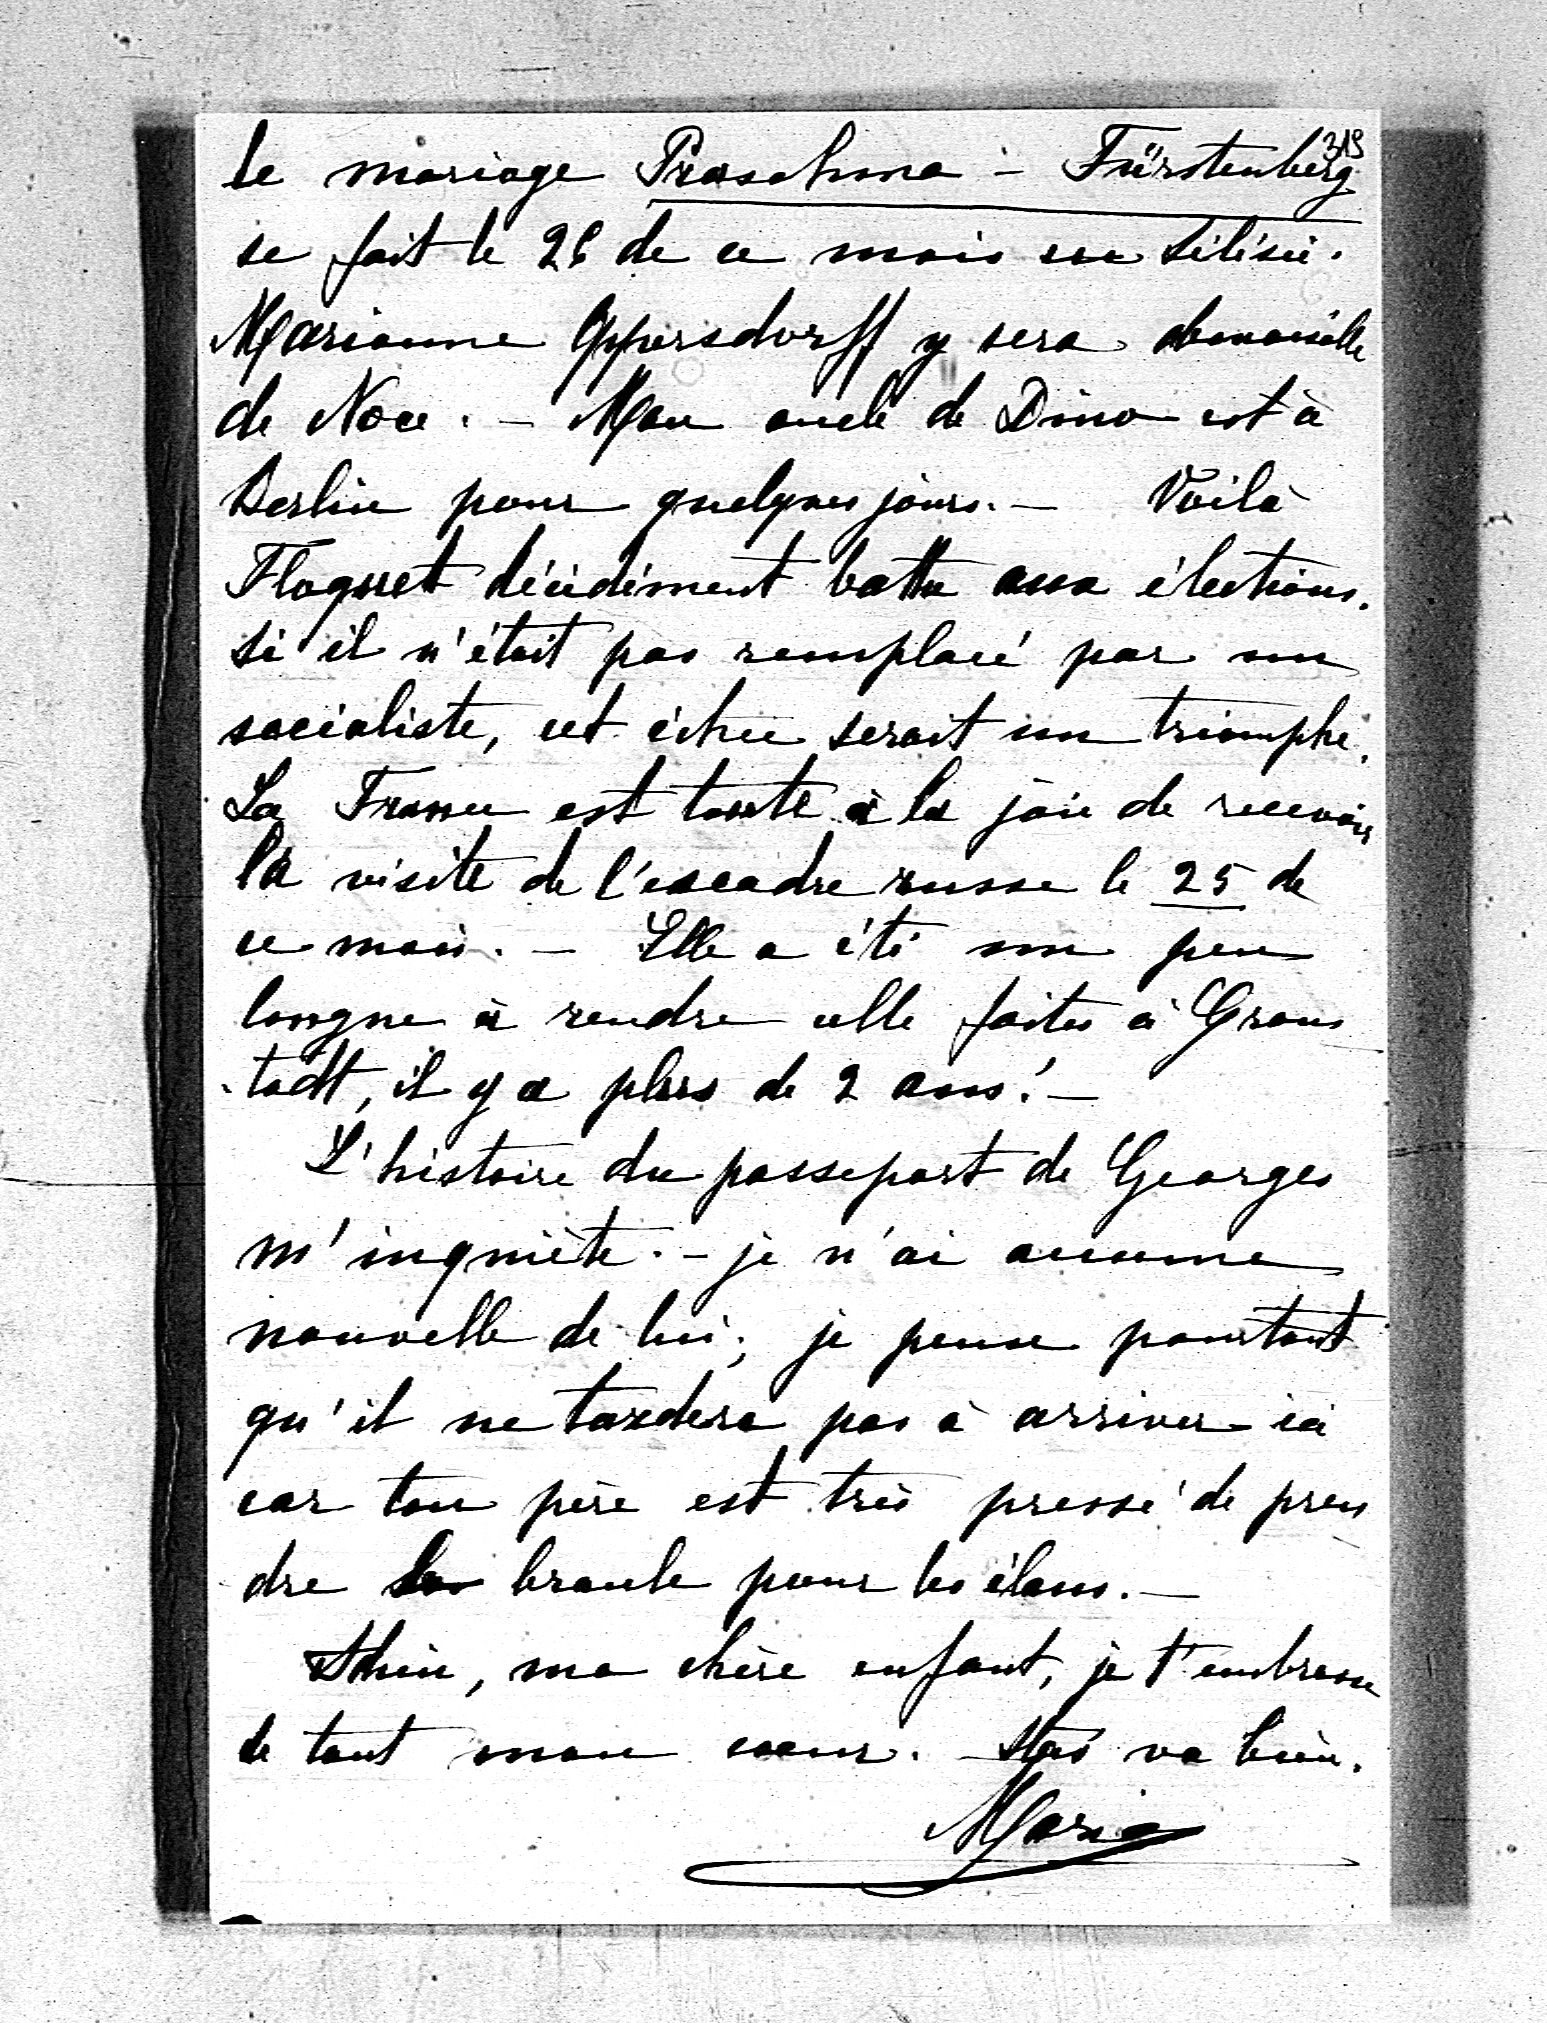 319
Le mariage Praschma - Fürstenberg
se fait le 26 de ce mois en Silésie.
Marianne Oppersdorff y sera demoiselle
de Noce. - Mon oncle de Dino est à
Berlin pour quelques jours. - Voilà
Floquet décidément battu aux élections.
Si il n'était pas remplacé par un
socialiste, cet échec serait un triomphe.
La France est toute à la joie de recevoir
la visite de l'escadre russe le 25 de
ce mois. - Elle a été un peu
longue à rendre celle faites à Crons
tadt, il y a plus de 2 ans! -
L'histoire du passeport de Georges
m'inquiète. - je n'ai aucune
nouvelle de lui; je pense pourtant
qu'il ne tardera pas à arriver ici
car ton père est très pressé de pren
dre branle pour les élans. -
Adieu, ma chère enfant, je t'embrasse
de tout mon coeur. Stas va bien.
Marie